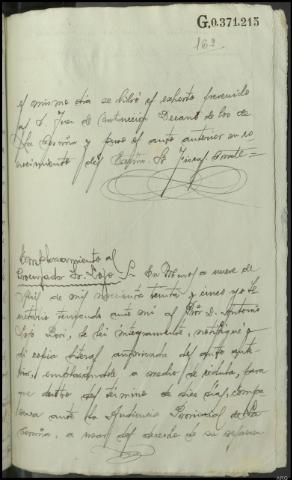 G.0.371.215
162
el mismo dia se libró el exhorto prevenido
al Sr. Juez de Instruccion Decano de los de
La Coruña y puse el auto anterior en co
nocimiento del
Emplazamiento al
Procurador Sr. Soto
En Menos a nueve de
Abril de mil novecientos treinta y cinco yo Se
cretario teniendo ante mi al Pror. D. Antonio
Soto, le lei integramente, notifique y
di copia literal autorizada del auto ante
rior, emplazandole a medio de cedula, para
que dentro del término de diez dias, compa
rezca ante la Audiencia Provincial de La
Coruña, a usar del derecho de su defensa